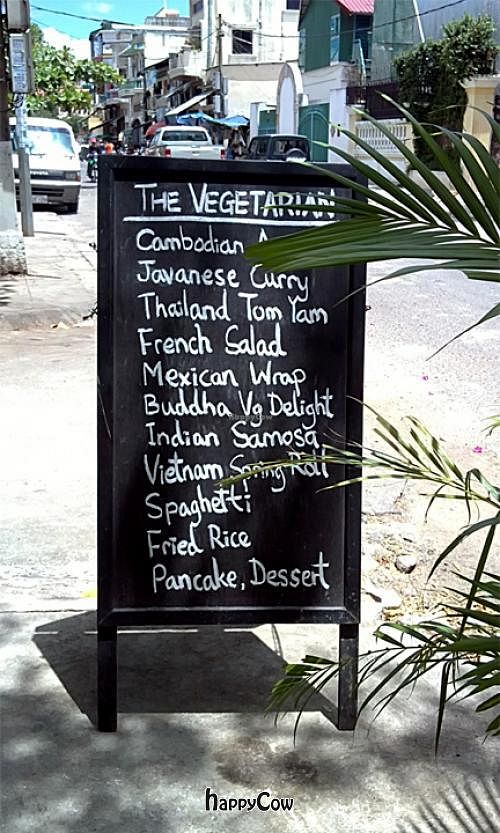 THE VEGETARIAN
Cambodian
Javanese Curry
Thailand Tom Yam
French Salad
Mexican Wrap
Buddha Vg Delight
Indian Samosa
Vietnam Spring Roll
Spaghetti
Fried Rice
Pancake, Dessert
HappyCow